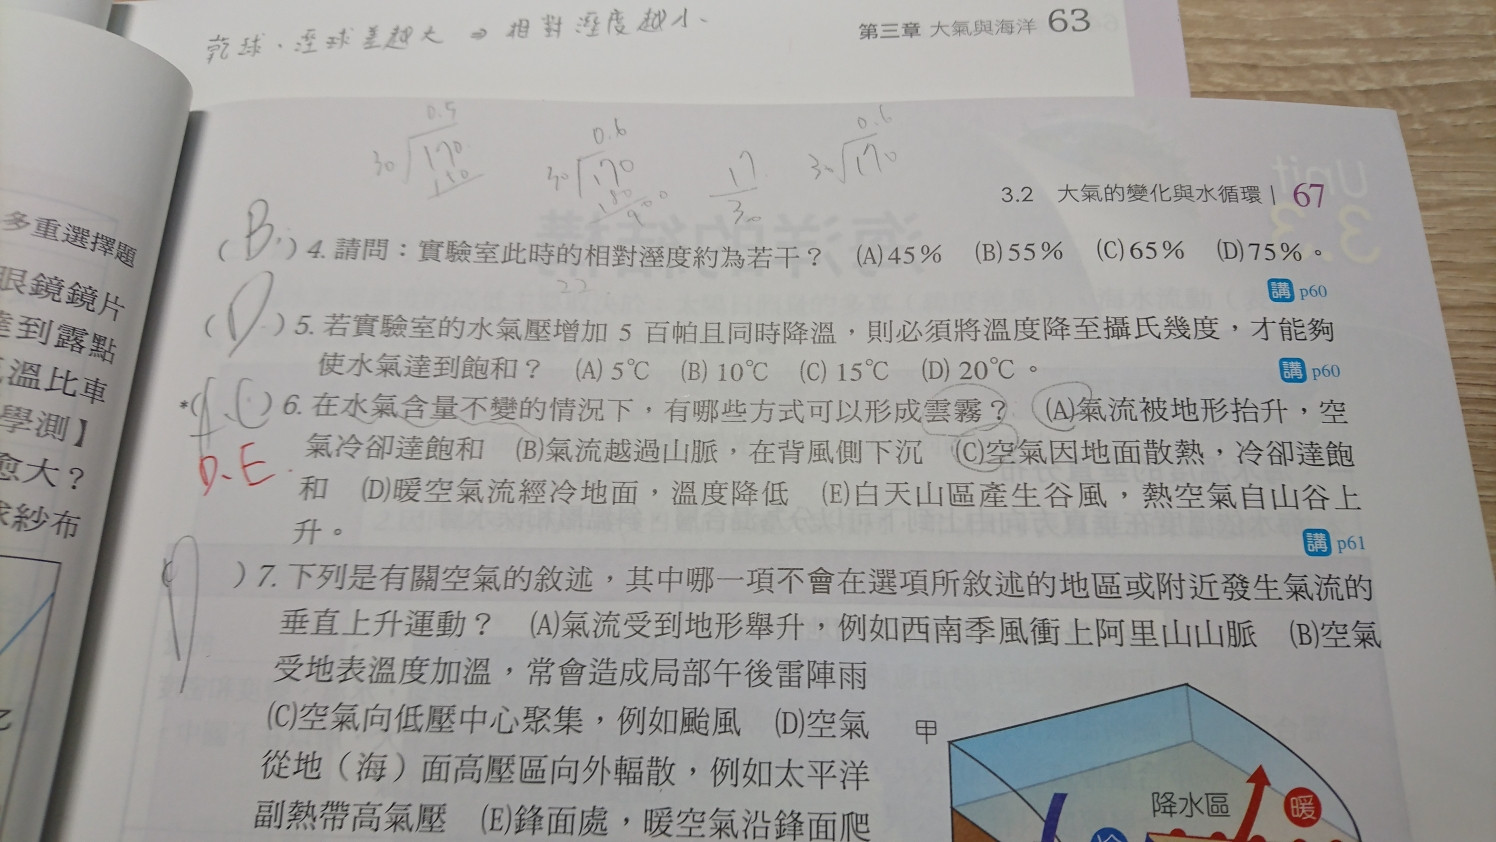 乾球、溼球差越大 ⇒ 相對溼度越小、
第三章 大氣與海洋 63
0.5
30 170
150
0.6
30 170
180
900
17
30
0.6
30 170
3.2 大氣的變化與水循環 | 67
多重選擇題
眼鏡鏡片
達到露點
氣溫比車
學測】
愈大？
球紗布
( B ) 4. 請問：實驗室此時的相對溼度約為若干？ (A)45% (B)55% (C)65% (D)75%。
講 p60
22
( D ) 5. 若實驗室的水氣壓增加 5 百帕且同時降溫，則必須將溫度降至攝氏幾度，才能夠
使水氣達到飽和？ (A) 5℃ (B) 10℃ (C) 15℃ (D) 20℃。
講 p60
*( A、C ) 6. 在水氣含量不變的情況下，有哪些方式可以形成雲霧？ (A)氣流被地形抬升，空
氣冷卻達飽和 (B)氣流越過山脈，在背風側下沉 (C)空氣因地面散熱，冷卻達飽
D、E
和 (D)暖空氣流經冷地面，溫度降低 (E)白天山區產生谷風，熱空氣自山谷上
升。
講 p61
( ) 7. 下列是有關空氣的敘述，其中哪一項不會在選項所敘述的地區或附近發生氣流的
垂直上升運動？ (A)氣流受到地形舉升，例如西南季風衝上阿里山山脈 (B)空氣
受地表溫度加溫，常會造成局部午後雷陣雨
(C)空氣向低壓中心聚集，例如颱風 (D)空氣
從地（海）面高壓區向外輻散，例如太平洋
副熱帶高氣壓 (E)鋒面處，暖空氣沿鋒面爬
甲
降水區
暖
冷